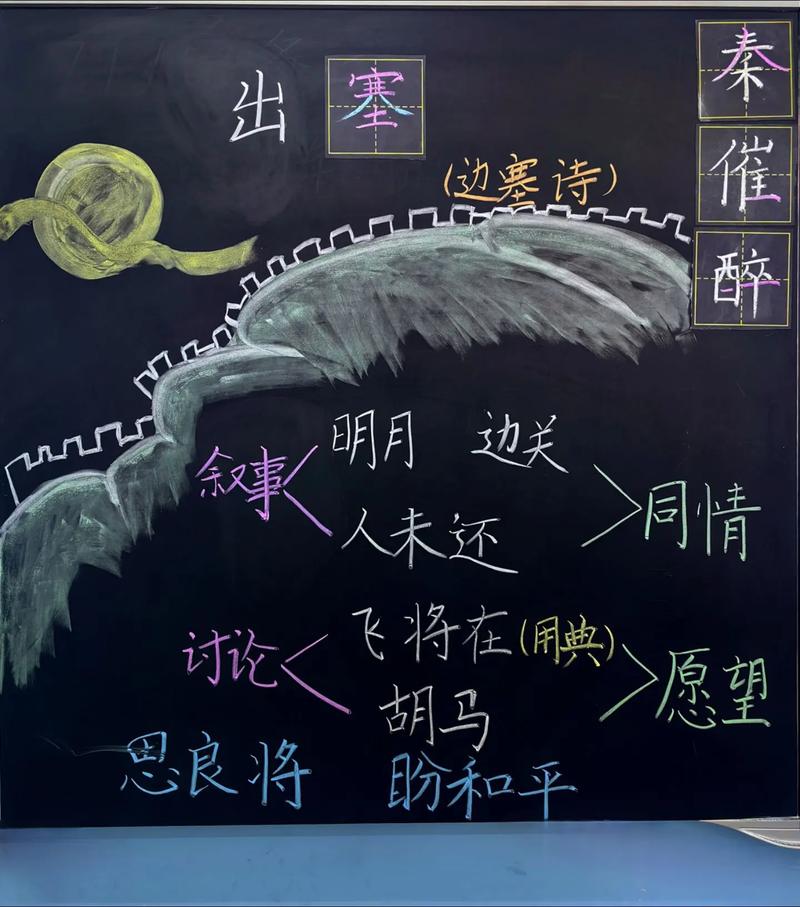 出塞
(边塞诗)
秦
催
醉
叙事
明月 边关
人未还
同情
讨论
飞将在(用典)
胡马
愿望
思良将 盼和平